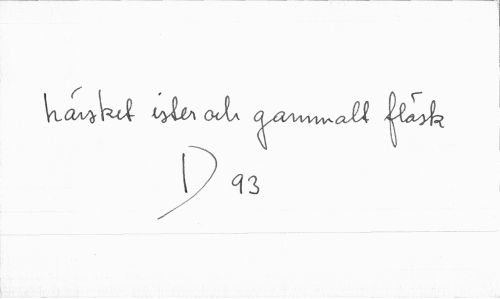 härsket ister och gammalt fläsk
D 93